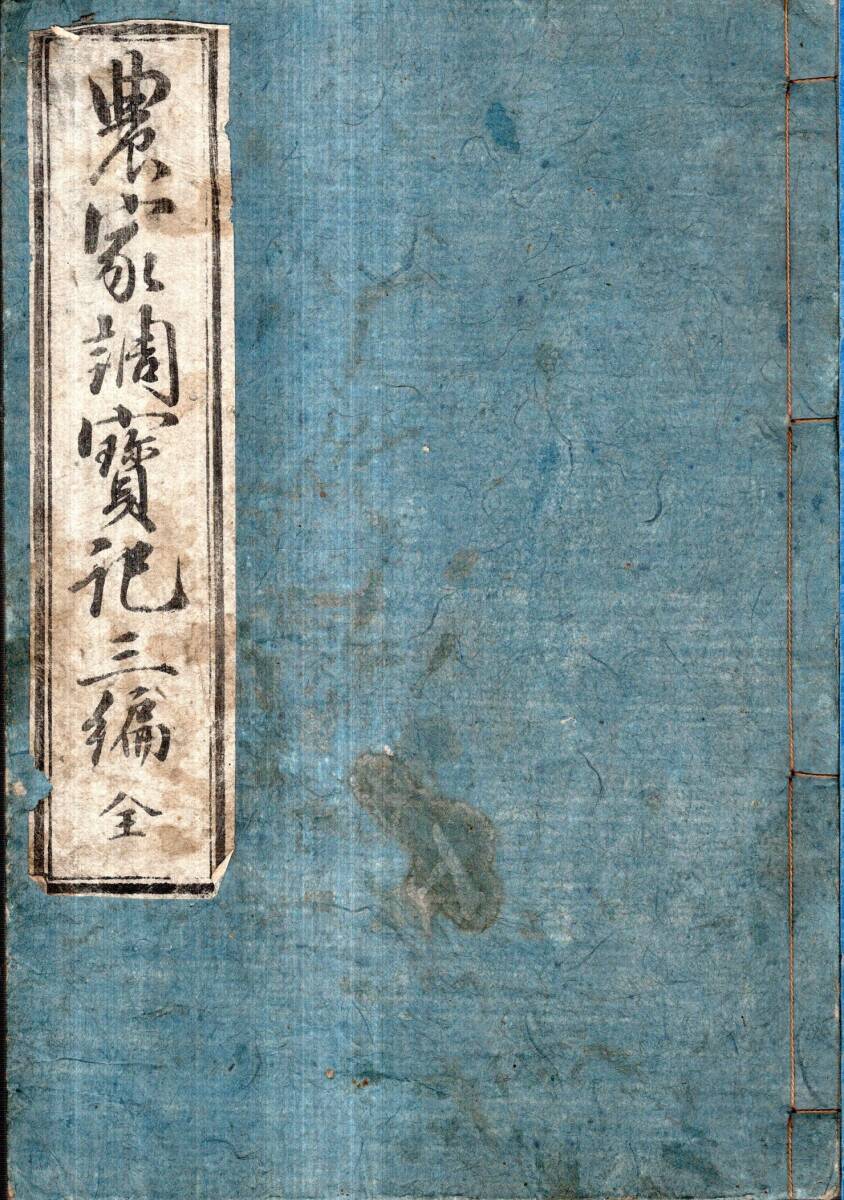 農家調寳記三編 全